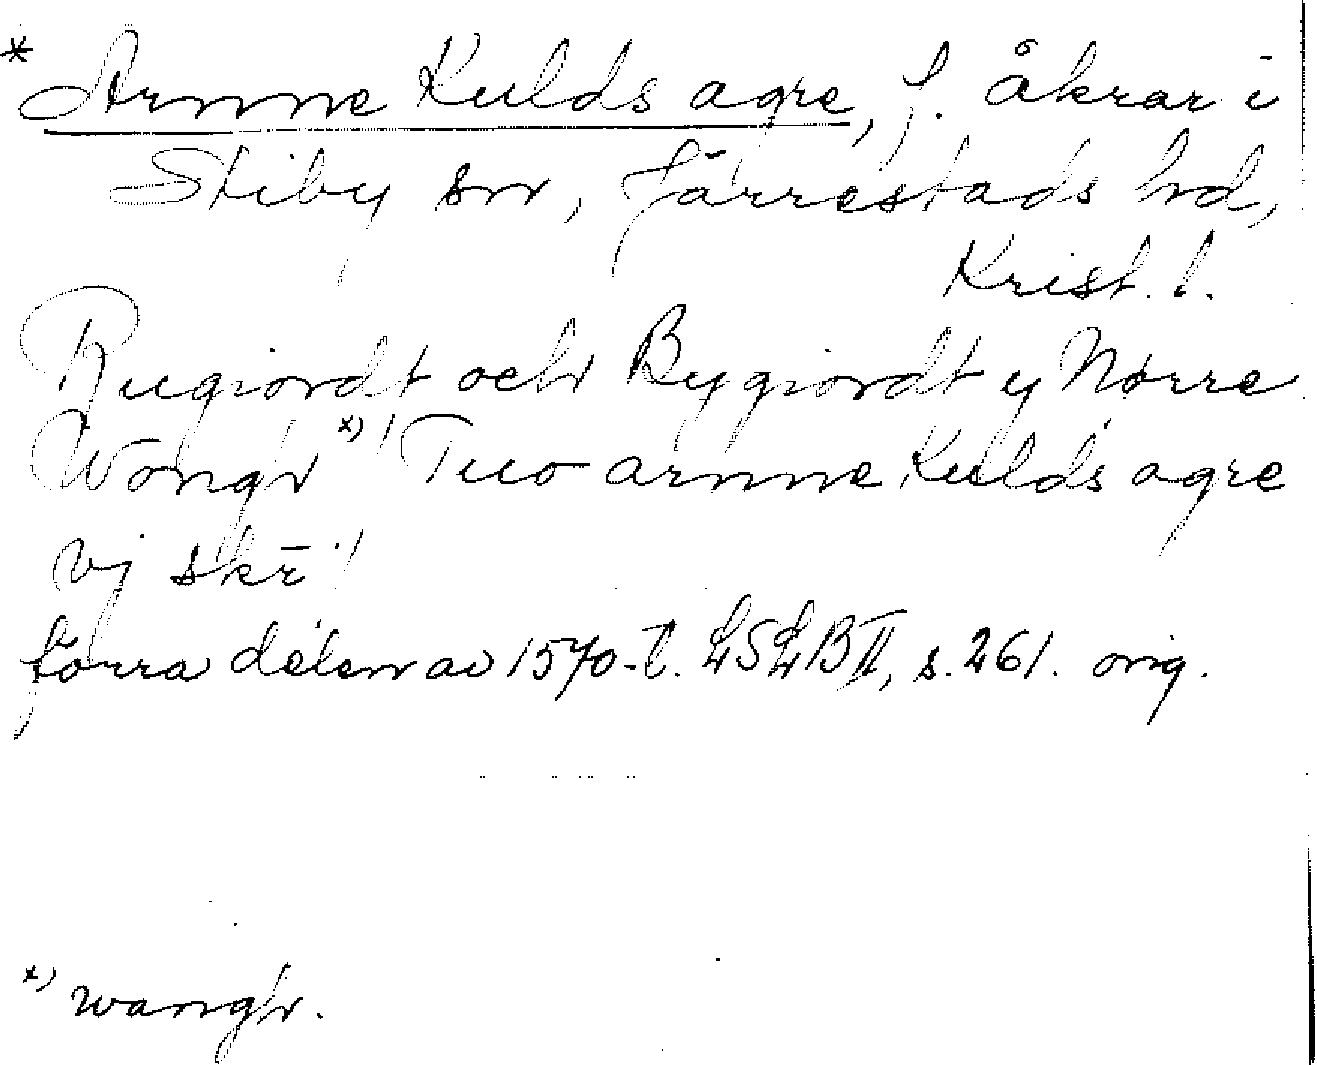 * Arnne Kulds agre, f. åkrar i
Stiby sn, Järrestads hd,
Krist. l.
Rugiordt och Bygiordt y Nørre
Wongh x) / Tuo arnne Kulds agre
vj skr̄ . /
förra delen av 1570-t. LSLB II, s. 261. orig.
x) wangh.